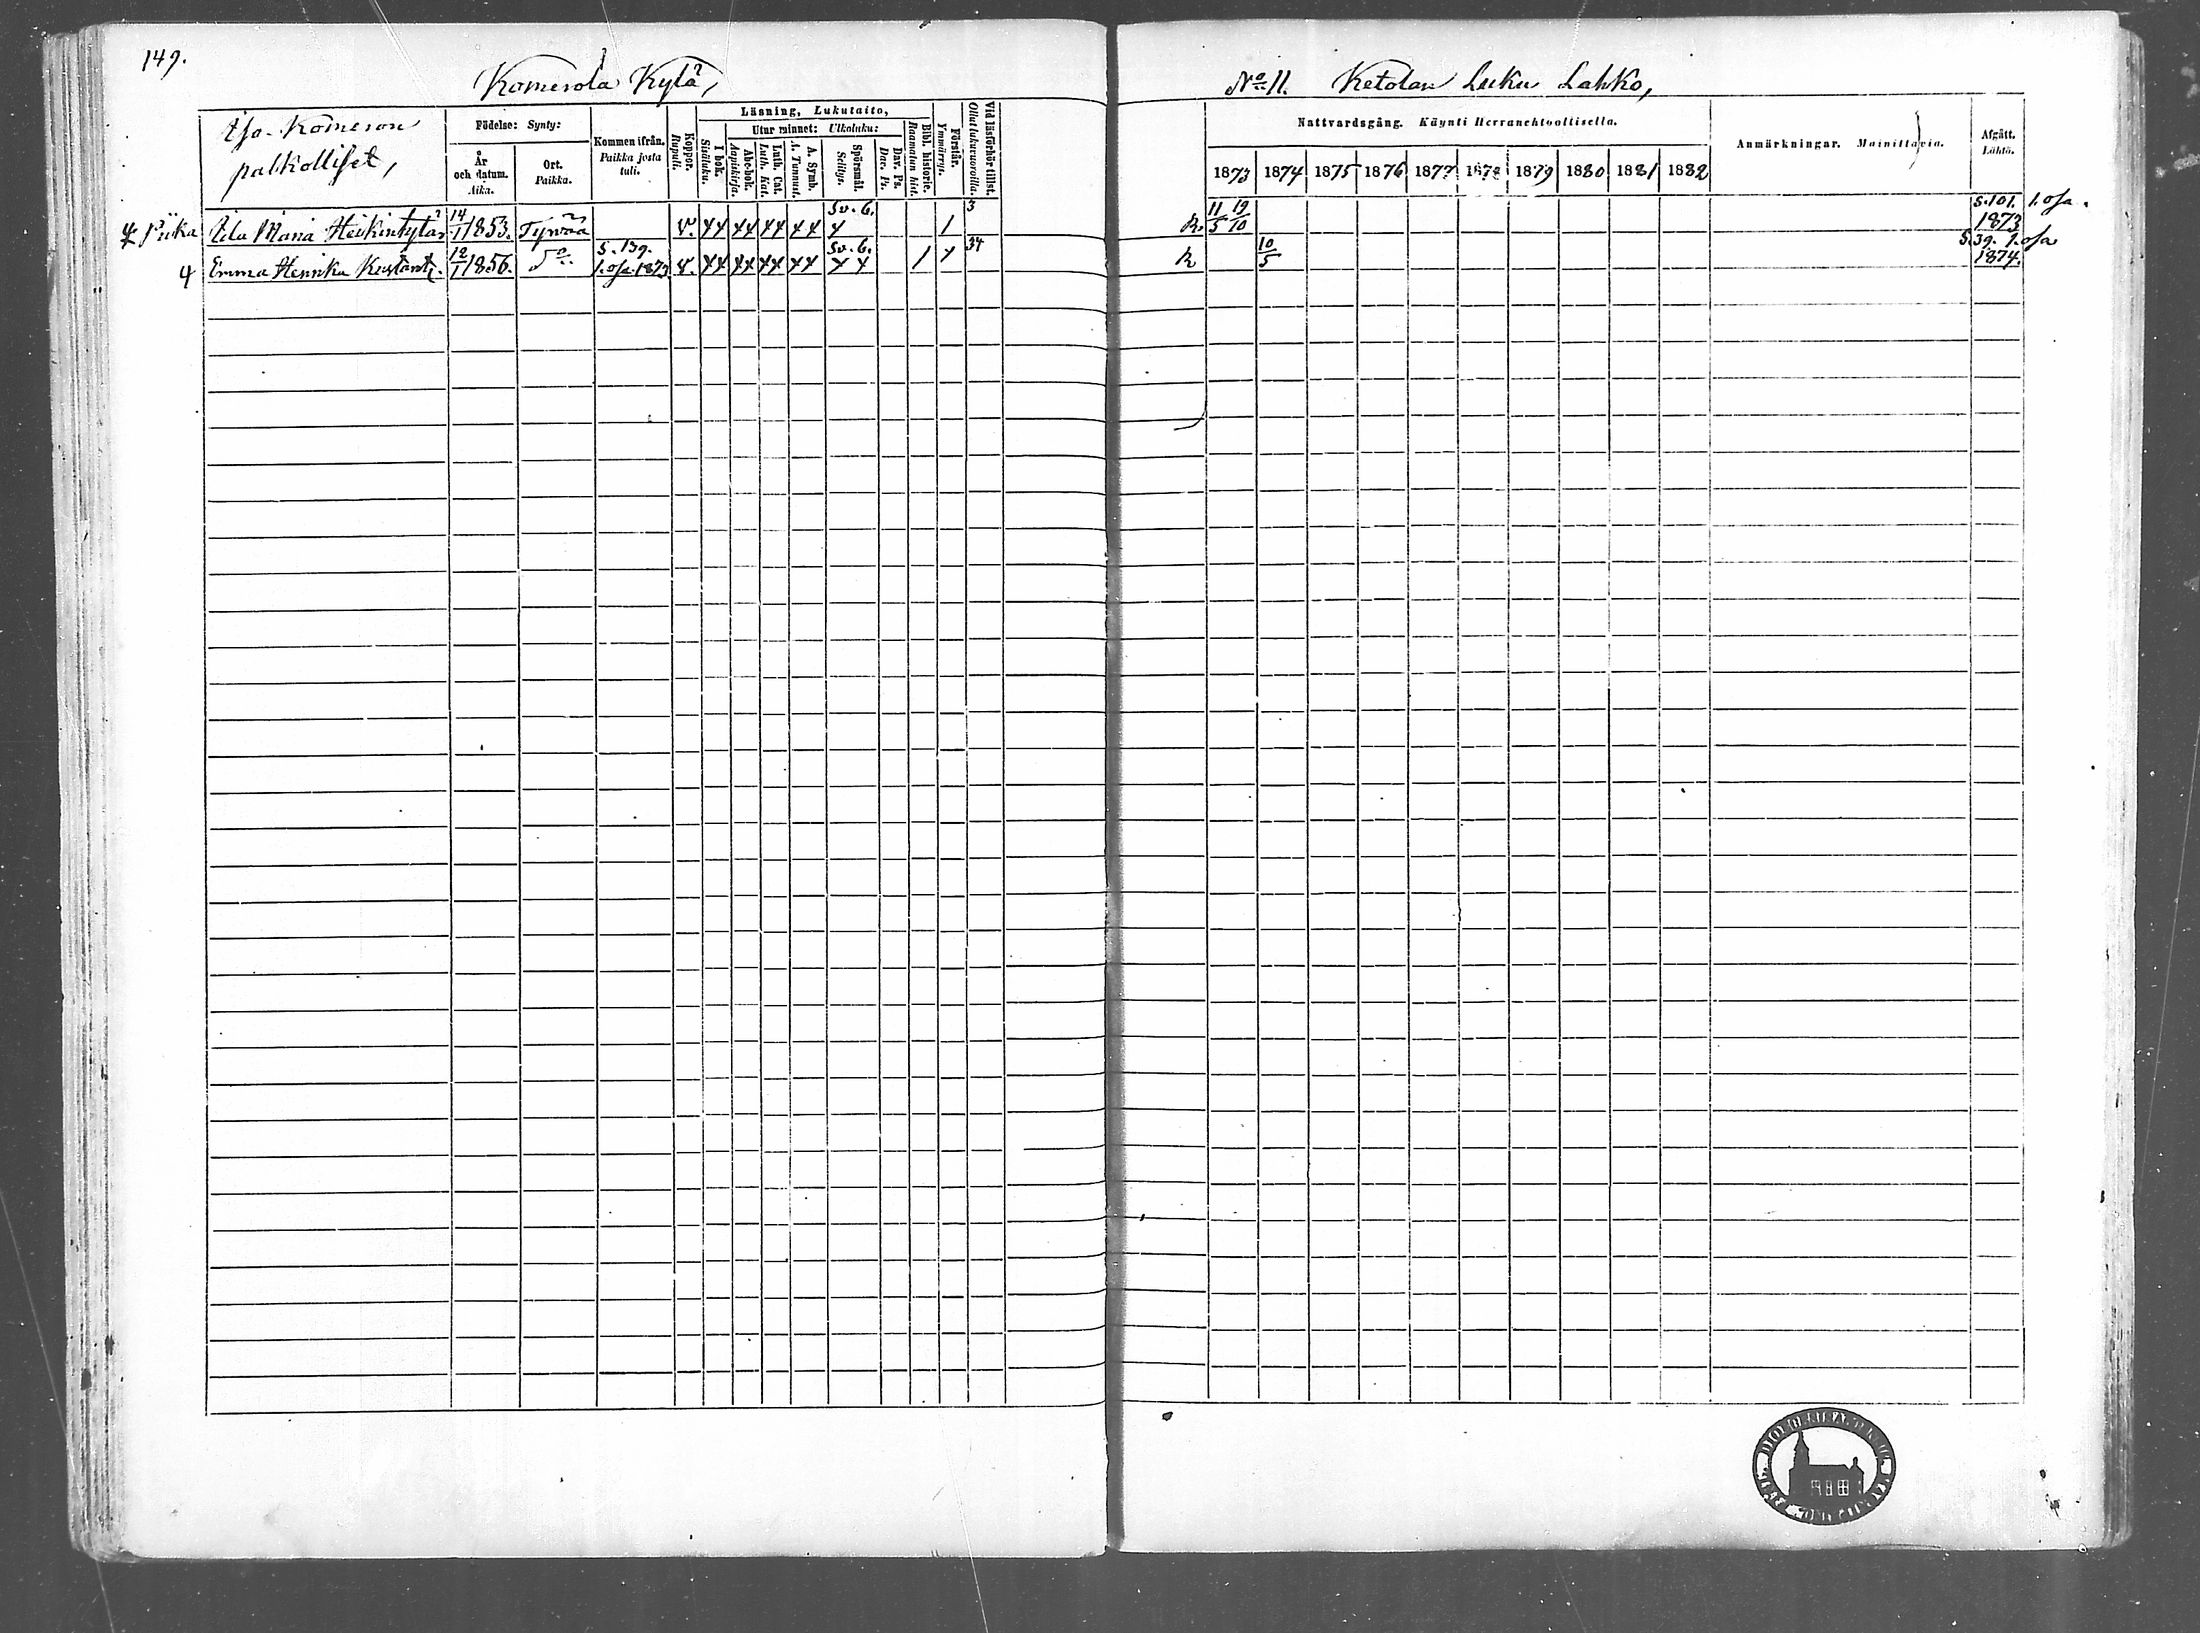 149.
Komerola Kylä,
No 11. Ketolan Luku Lahko,
Iso-Komeron
palkolliset,
Födelse: Synty:
År och datum. Aika.
Ort. Paikka.
Kommen ifrån. Paikka josta tuli.
Koppor. Rupuli.
Läsning, Lukutaito,
I bok. Sisäluku.
Utur minnet: Ulkoluku:
Abc-bok. Aapiskirja.
Luth. Cat. Luth. Kat.
A. Symb. A. Tunnust.
Spörsmål. Selitys.
Dav. Ps. Dav. Ps.
Bibl. historie. Raamatun hist.
Förstår. Ymmärrys.
Vid läsförhör tillst. Ollut lukuvuoroilla.
Nattvardsgång. Käynti Herranehtoollisella.
1873 1874 1875 1876 1877 1878 1879 1880 1881 1882
Anmärkningar. Mainittavia.
Afgått. Lähtö.
Piika Maria Heikintytär 14/1 1853. Tyrvää v. Sv. 6. 1 3 R. 11/5 19/10 S. 101. 1. osa. 1873
Emma Henrika Kustant. 12/1 1856. Do S. 139. 1. osa. 1873 v. Sv. 6. 1 34 R 10/5 S. 39. 1. osa 1874.